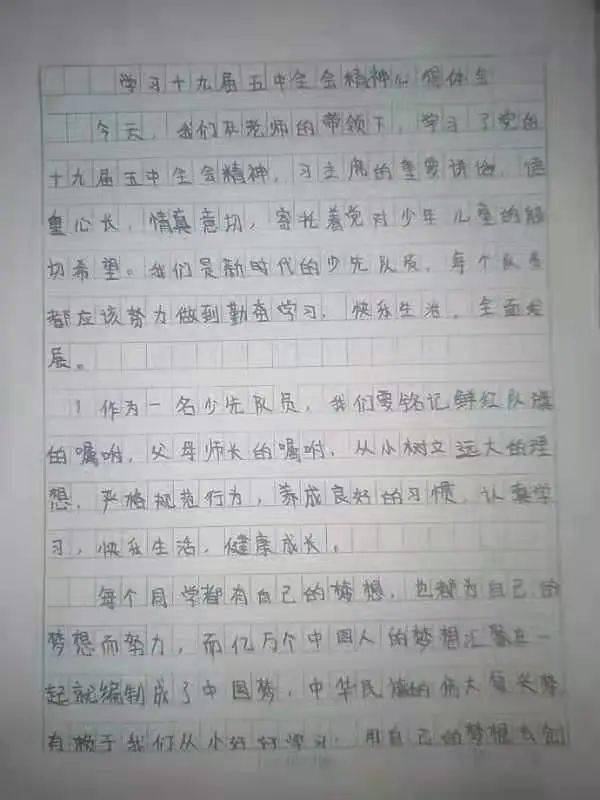 学习十九届五中全会精神心得体会
今天，我们在老师的带领下，学习了党的
十九届五中全会精神。习主席的重要讲话，语
重心长，情真意切，寄托着党对少年儿童的殷
切希望。我们是新时代的少先队员，每个队员
都应该努力做到勤奋学习，快乐生活，全面发
展。
作为一名少先队员，我们要铭记鲜红队旗
的嘱咐，父母师长的嘱咐，从小树立远大的理
想，严格规范行为，养成良好的习惯，认真学
习，快乐生活，健康成长。
每个同学都有自己的梦想，也都为自己的
梦想而努力，而亿万个中国人的梦想汇聚在一
起就编制成了中国梦，中华民族的伟大复兴梦
有赖于我们从小好好学习，用自己的梦想去创